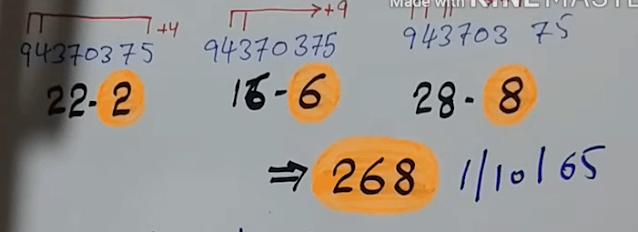 Made with KINEMASTER
+4 +9
94370375 94370375 943703 75
22-2 16-6 28-8
⇒ 268 1/10/65